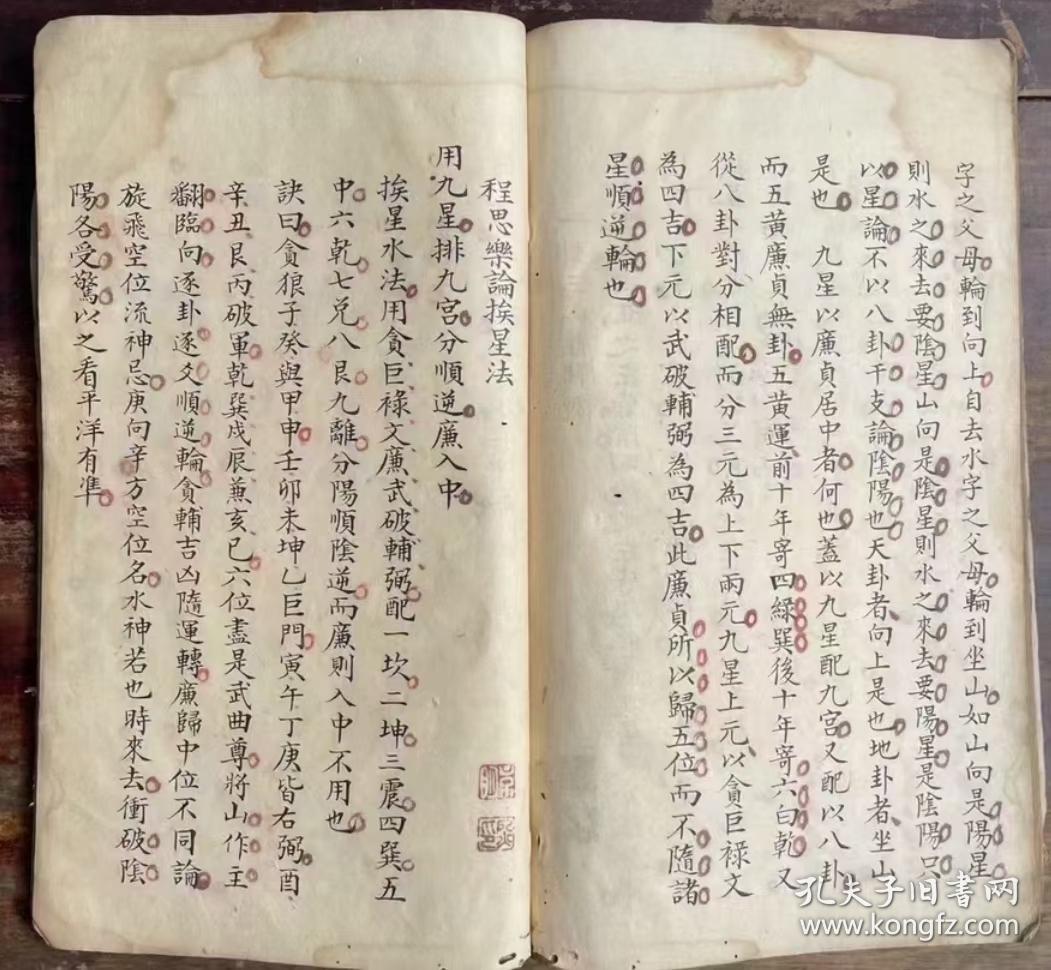 字之父母輪到向上自去水字之父母輪到坐山如山向是陽星
則水之來去要陰星山向是陰星則水之來去要陽星是陰陽只
以星論不以八卦干支論陰陽也天卦者向上是也地卦者坐山
是也　九星以廉貞居中者何也蓋以九星配九宮又配以八卦
而五黃廉貞無卦五黃運前十年寄四綠巽後十年寄六白乾又
從八卦對分相配而分三元為上下兩元九星上元以貪巨祿文
為四吉下元以武破輔弼為四吉此廉貞所以歸五位而不隨諸
星順逆輪也
程思樂論挨星法
用九星排九宮分順逆廉入中
挨星水法用貪巨祿文廉武破輔弼配一坎二坤三震四巽五
中六乾七兌八艮九離分陽順陰逆而廉則入中不用也
訣曰貪狼子癸與甲申壬卯未坤乙巨門寅午丁庚皆右弼酉
辛丑艮丙破軍乾巽戍辰兼亥巳六位盡是武曲尊將山作主
翻臨向逐卦逐爻順逆輪貪輔吉凶隨運轉廉歸中位不同論
旋飛空位流神忌庚向辛方空位名水神若也時來去衝破陰
陽各受驚以之看平洋有準
孔夫子旧书网
www.kongfz.com